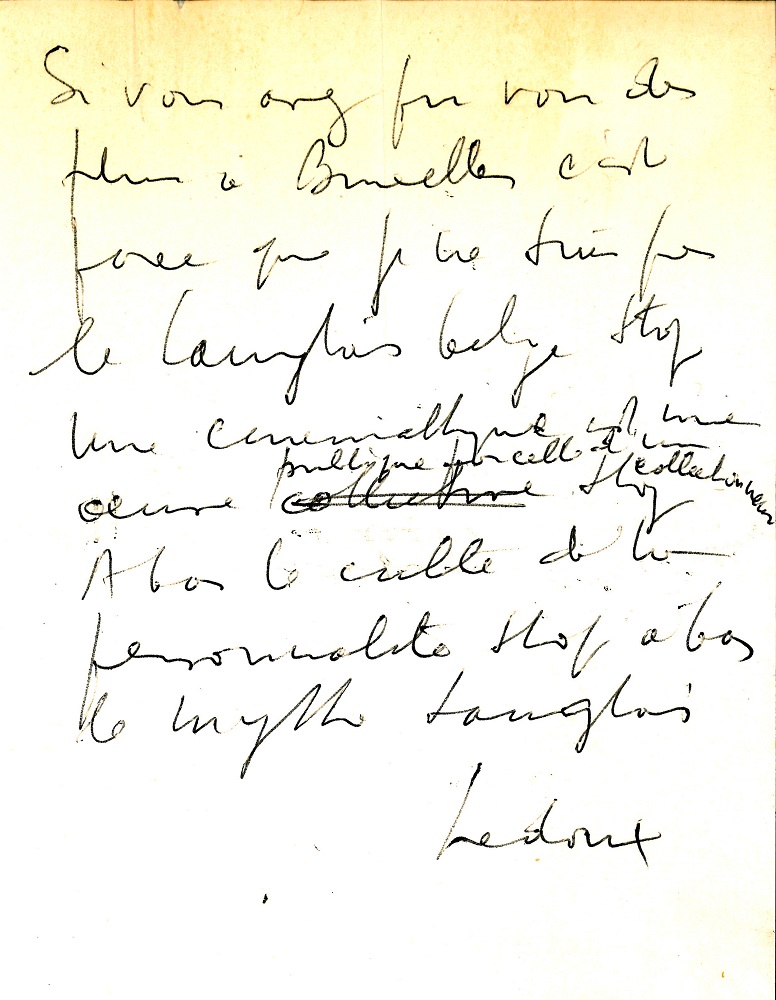 Si vous avez pu voir des
films à Bruxelles c'est
parce que je ne suis pas
le Langlois belge Stop
Une cinémathèque est une
publique pas celle d'un collectionneur
oeuvre collective Stop
A bas le culte de la
personnalité stop à bas
le mythe Langlois
Ledoux